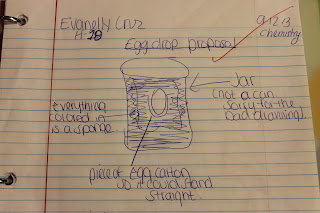 Evanelly Cruz
9.12.13
chemistry
Egg drop proposal
Jar
(not a can
sorry for the
bad drawing)
Everything
colored in
is a sponge
piece of egg carton
so it could stand
straight